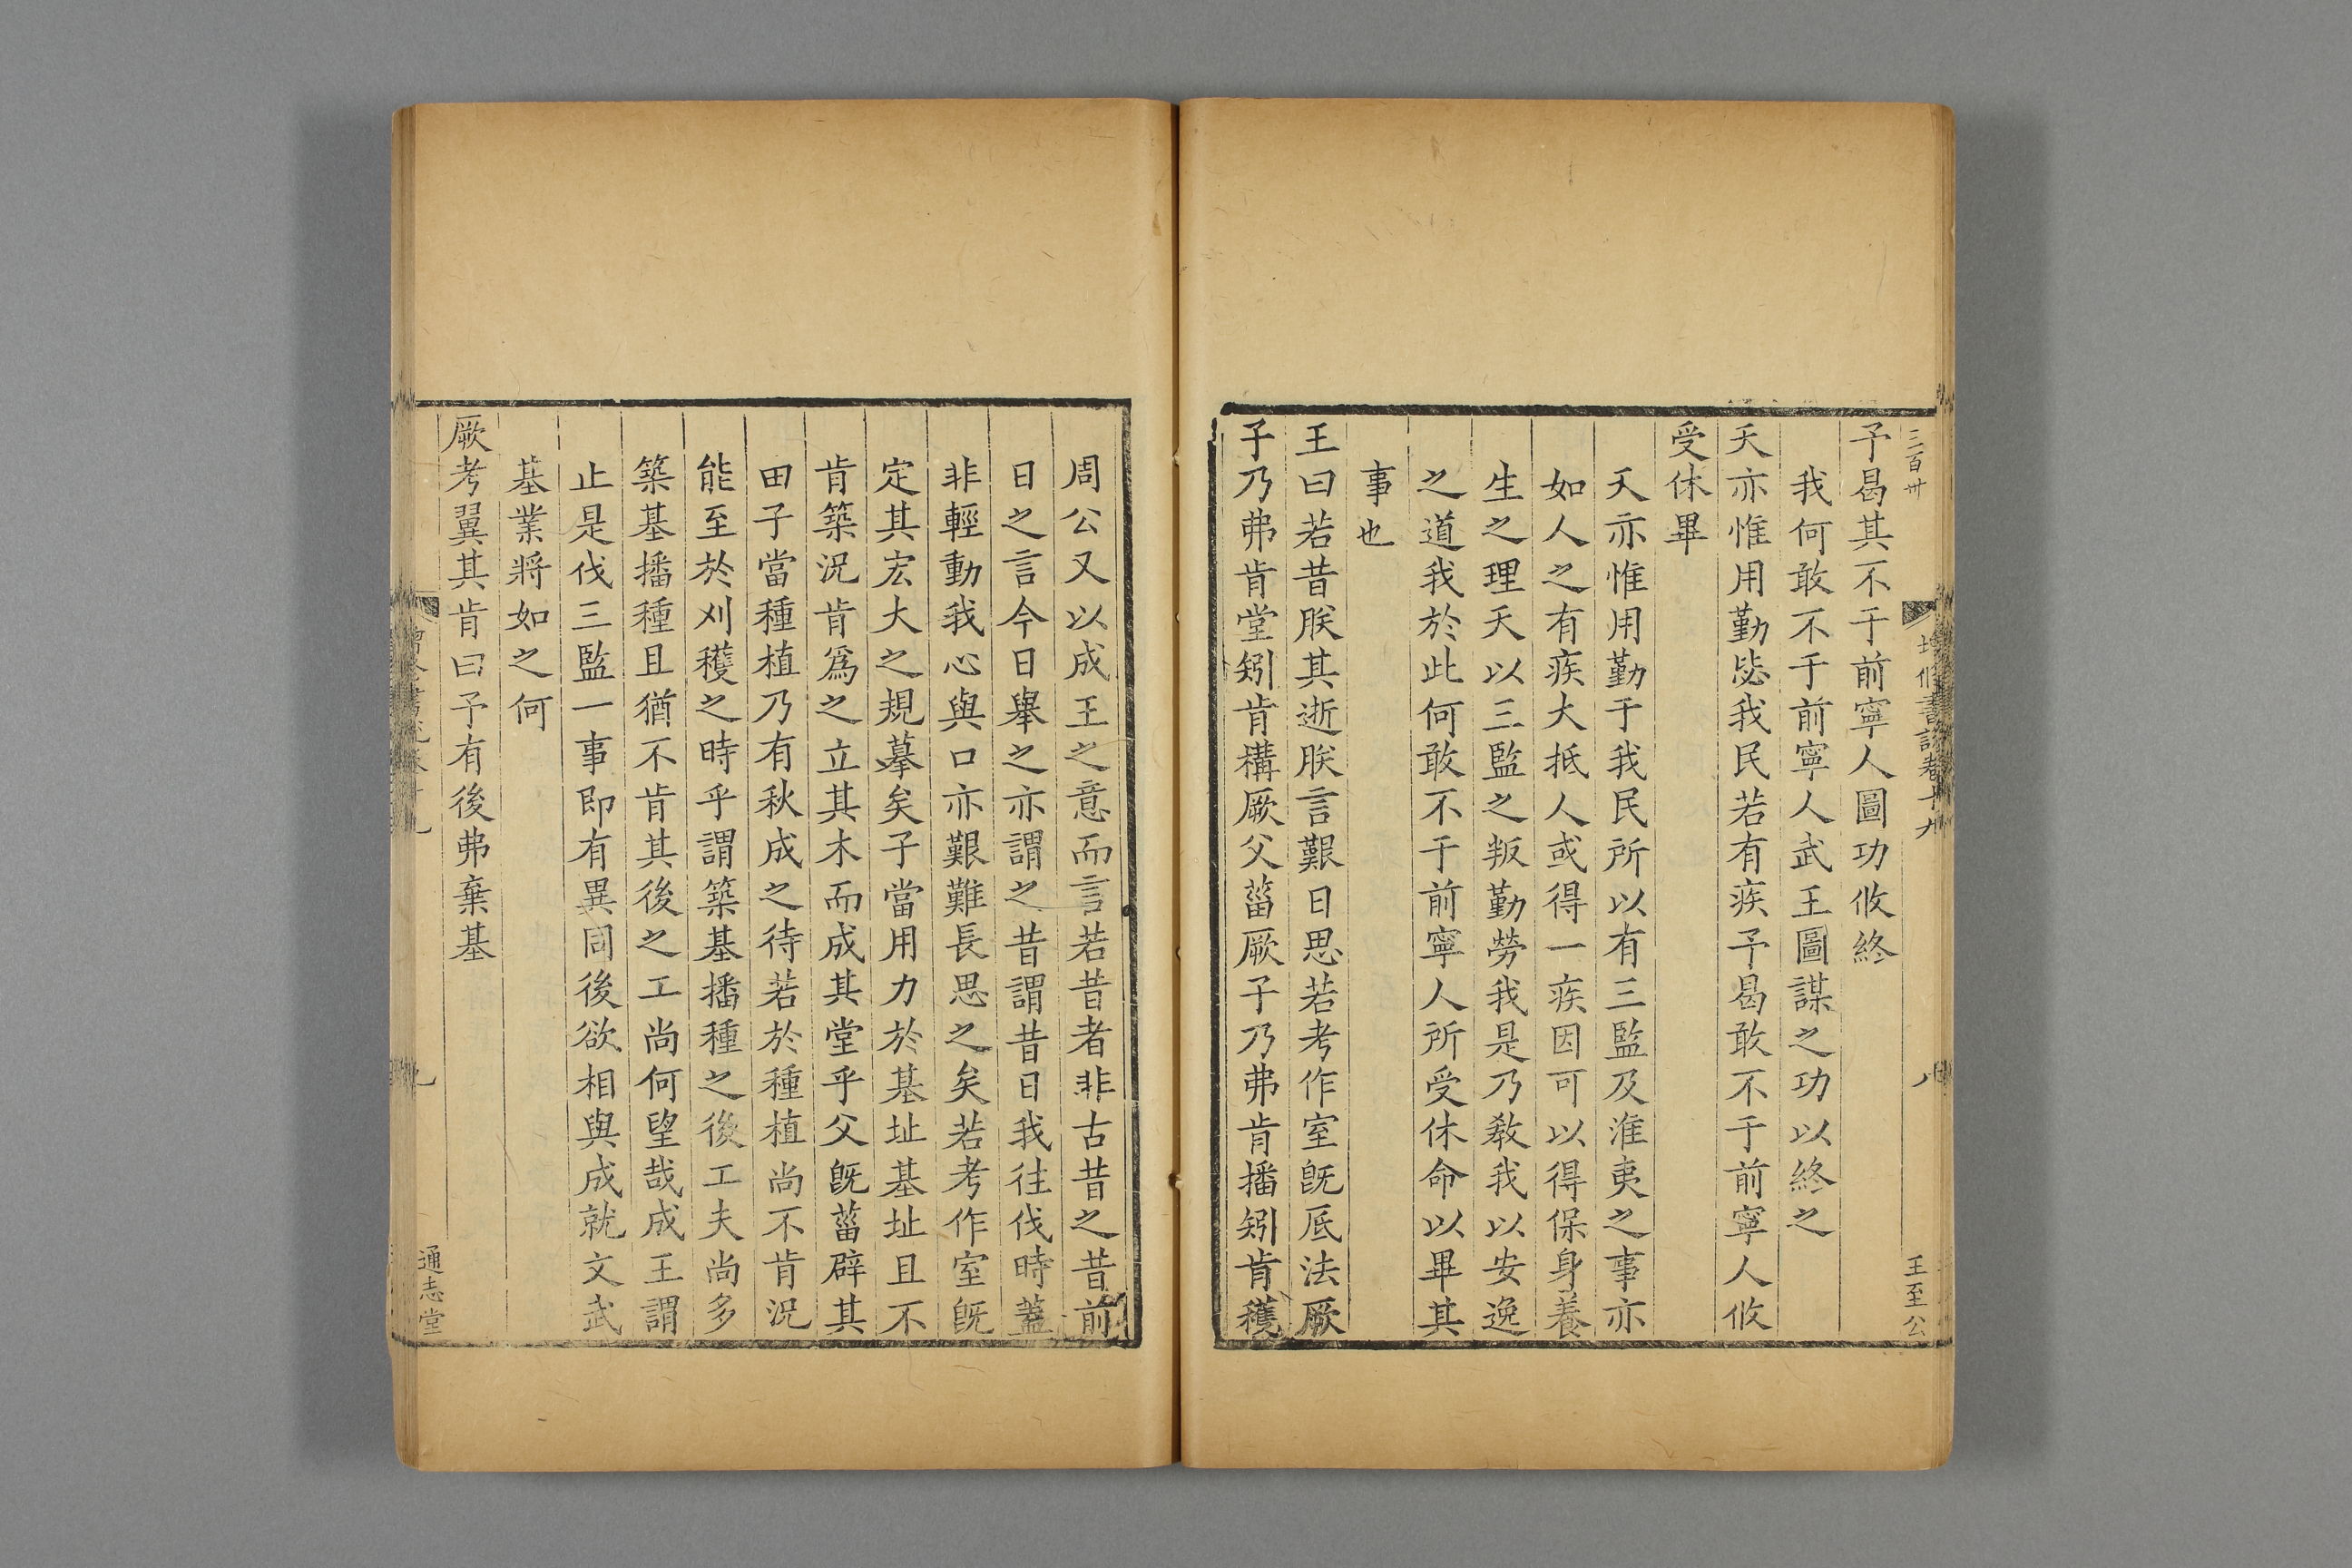 三百卅
增修書說卷十九
八
王至公
予曷其不于前寧人圖功攸終
我何敢不于前寧人武王圖謀之功以終之
天亦惟用勤毖我民若有疾予曷敢不于前寧人攸
受休畢
天亦惟用勤于我民所以有三監及淮夷之事亦
如人之有疾大抵人或得一疾因可以得保身養
生之理天以三監之叛勤勞我是乃敎我以安逸
之道我於此何敢不于前寧人所受休命以畢其
事也
王曰若昔朕其逝朕言艱日思若考作室旣厎法厥
子乃弗肯堂矧肯構厥父菑厥子乃弗肯播矧肯穫
周公又以成王之意而言若昔者非古昔之昔前
日之言今日舉之亦謂之昔謂昔日我往伐時蓋
非輕動我心與口亦艱難長思之矣若考作室旣
定其宏大之規摹矣子當用力於基址基址且不
肯築況肯爲之立其木而成其堂乎父旣菑辟其
田子當種植乃有秋成之待若於種植尚不肯況
能至於刈穫之時乎謂築基播種之後工夫尚多
築基播種且猶不肯其後之工尚何望哉成王謂
止是伐三監一事即有異同後欲相與成就文武
基業將如之何
厥考翼其肯曰予有後弗棄基
通志堂